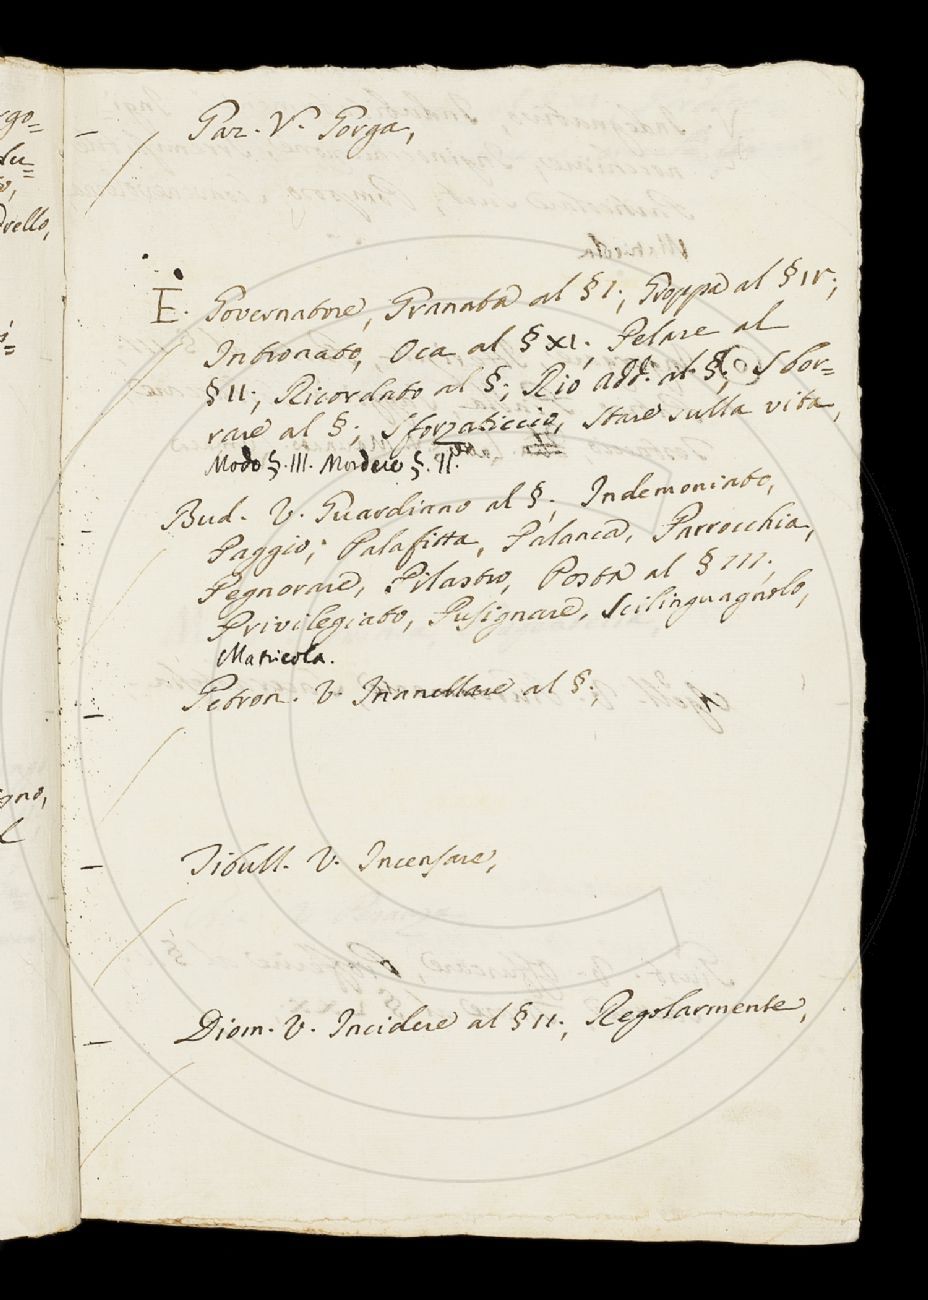 rgo=
lu=
o,
drello,
Gaz. V. Gorga,
E. Governatore, Granata al § I., Groppa al § IV.,
Intronato, Oca al § XI. Pelare al
§ II., Ricordato al §; Rio add. al §; Sbor=
rare al §; Sforzaticcio, Stare sulla vita,
Modo §. III. Mordere §. II.
Bud. V. Guardiano al §; Indemoniato,
Paggio; Palafitta, Palanca, Parrocchia,
Pegnorare, Pilastro, Posta al § III.
Privilegiato, Pusignare, Scilinguagnolo,
Matricola.
Petron. V. Innanellare al §;
igno,
Tibull. V. Incensare,
Diom. V. Incidere al § II., Regolarmente,